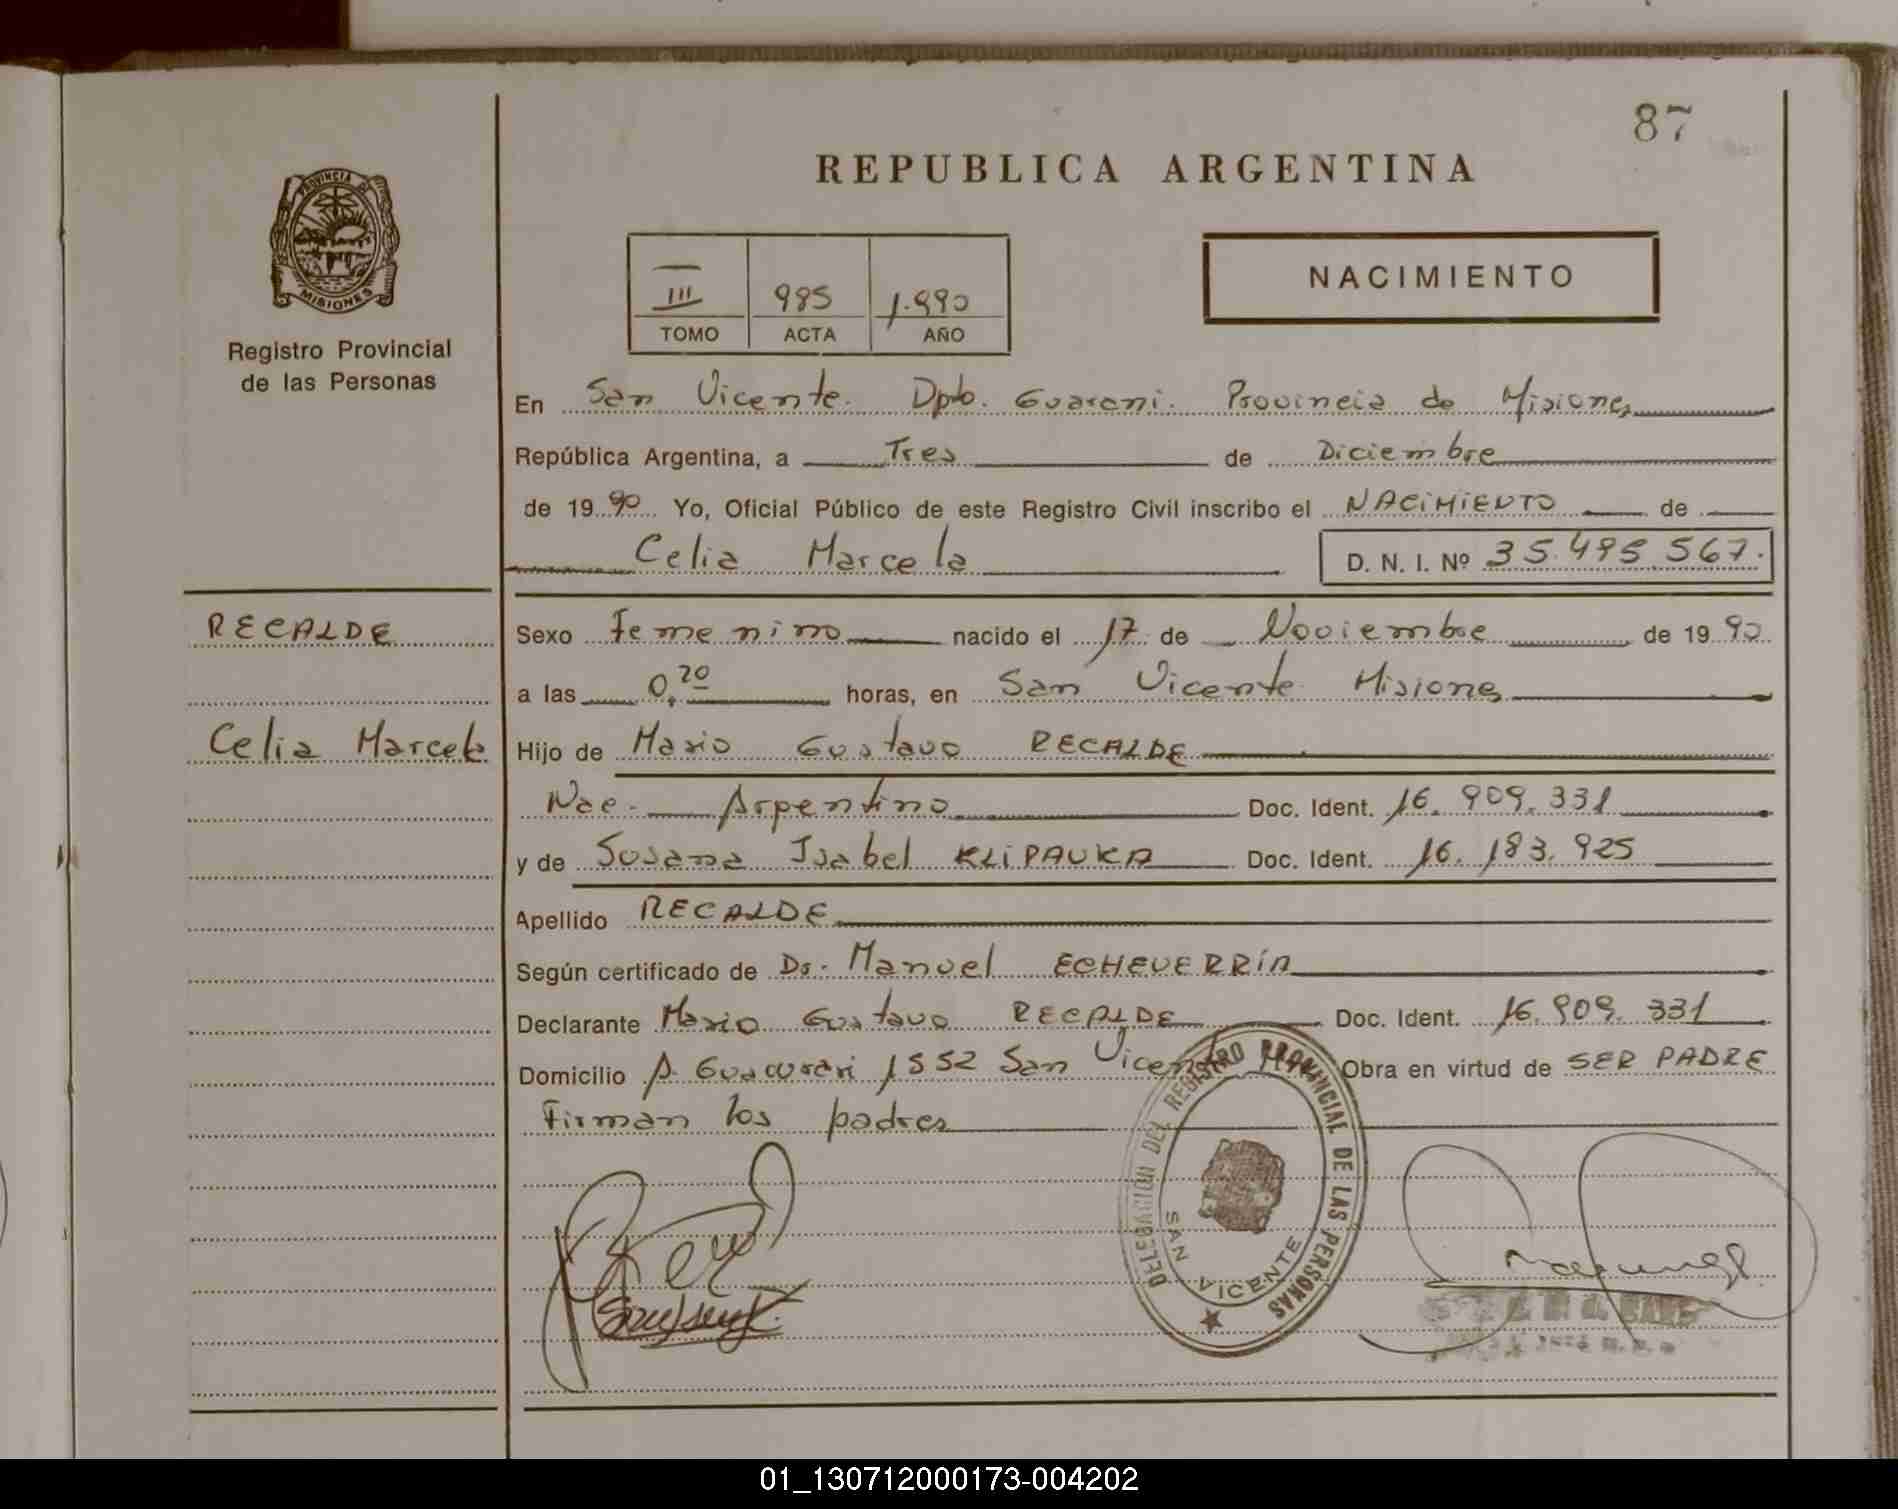 87
REPUBLICA ARGENTINA
PROVINCIA DE MISIONES
Registro Provincial
de las Personas
III 985 1.990
TOMO ACTA AÑO
NACIMIENTO
En San Vicente. Dpto. Guarani. Provincia de Misiones
República Argentina, a Tres de Diciembre
de 19 90 Yo, Oficial Público de este Registro Civil inscribo el NACIMIENTO de
Celia Marcela D. N. I. Nº 35.495.567.
RECALDE
Celia Marcela
Sexo Femenino nacido el 17 de Noviembre de 19 90
a las 0,20 horas, en San Vicente Misiones
Hijo de Mario Gustavo RECALDE
Nac. Argentino Doc. Ident. 16.909.331
y de Susana Isabel KLIPAUKA Doc. Ident. 16.183.925
Apellido RECALDE
Según certificado de Dr. Manuel ECHEVERRÍA
Declarante Mario Gustavo RECALDE Doc. Ident. 16.909.331
Domicilio A. Guacurari 1552 San Vicente Obra en virtud de SER PADRE
Firman los padres
DELEGACION DEL REGISTRO PROVINCIAL DE LAS PERSONAS
SAN VICENTE
01_130712000173-004202